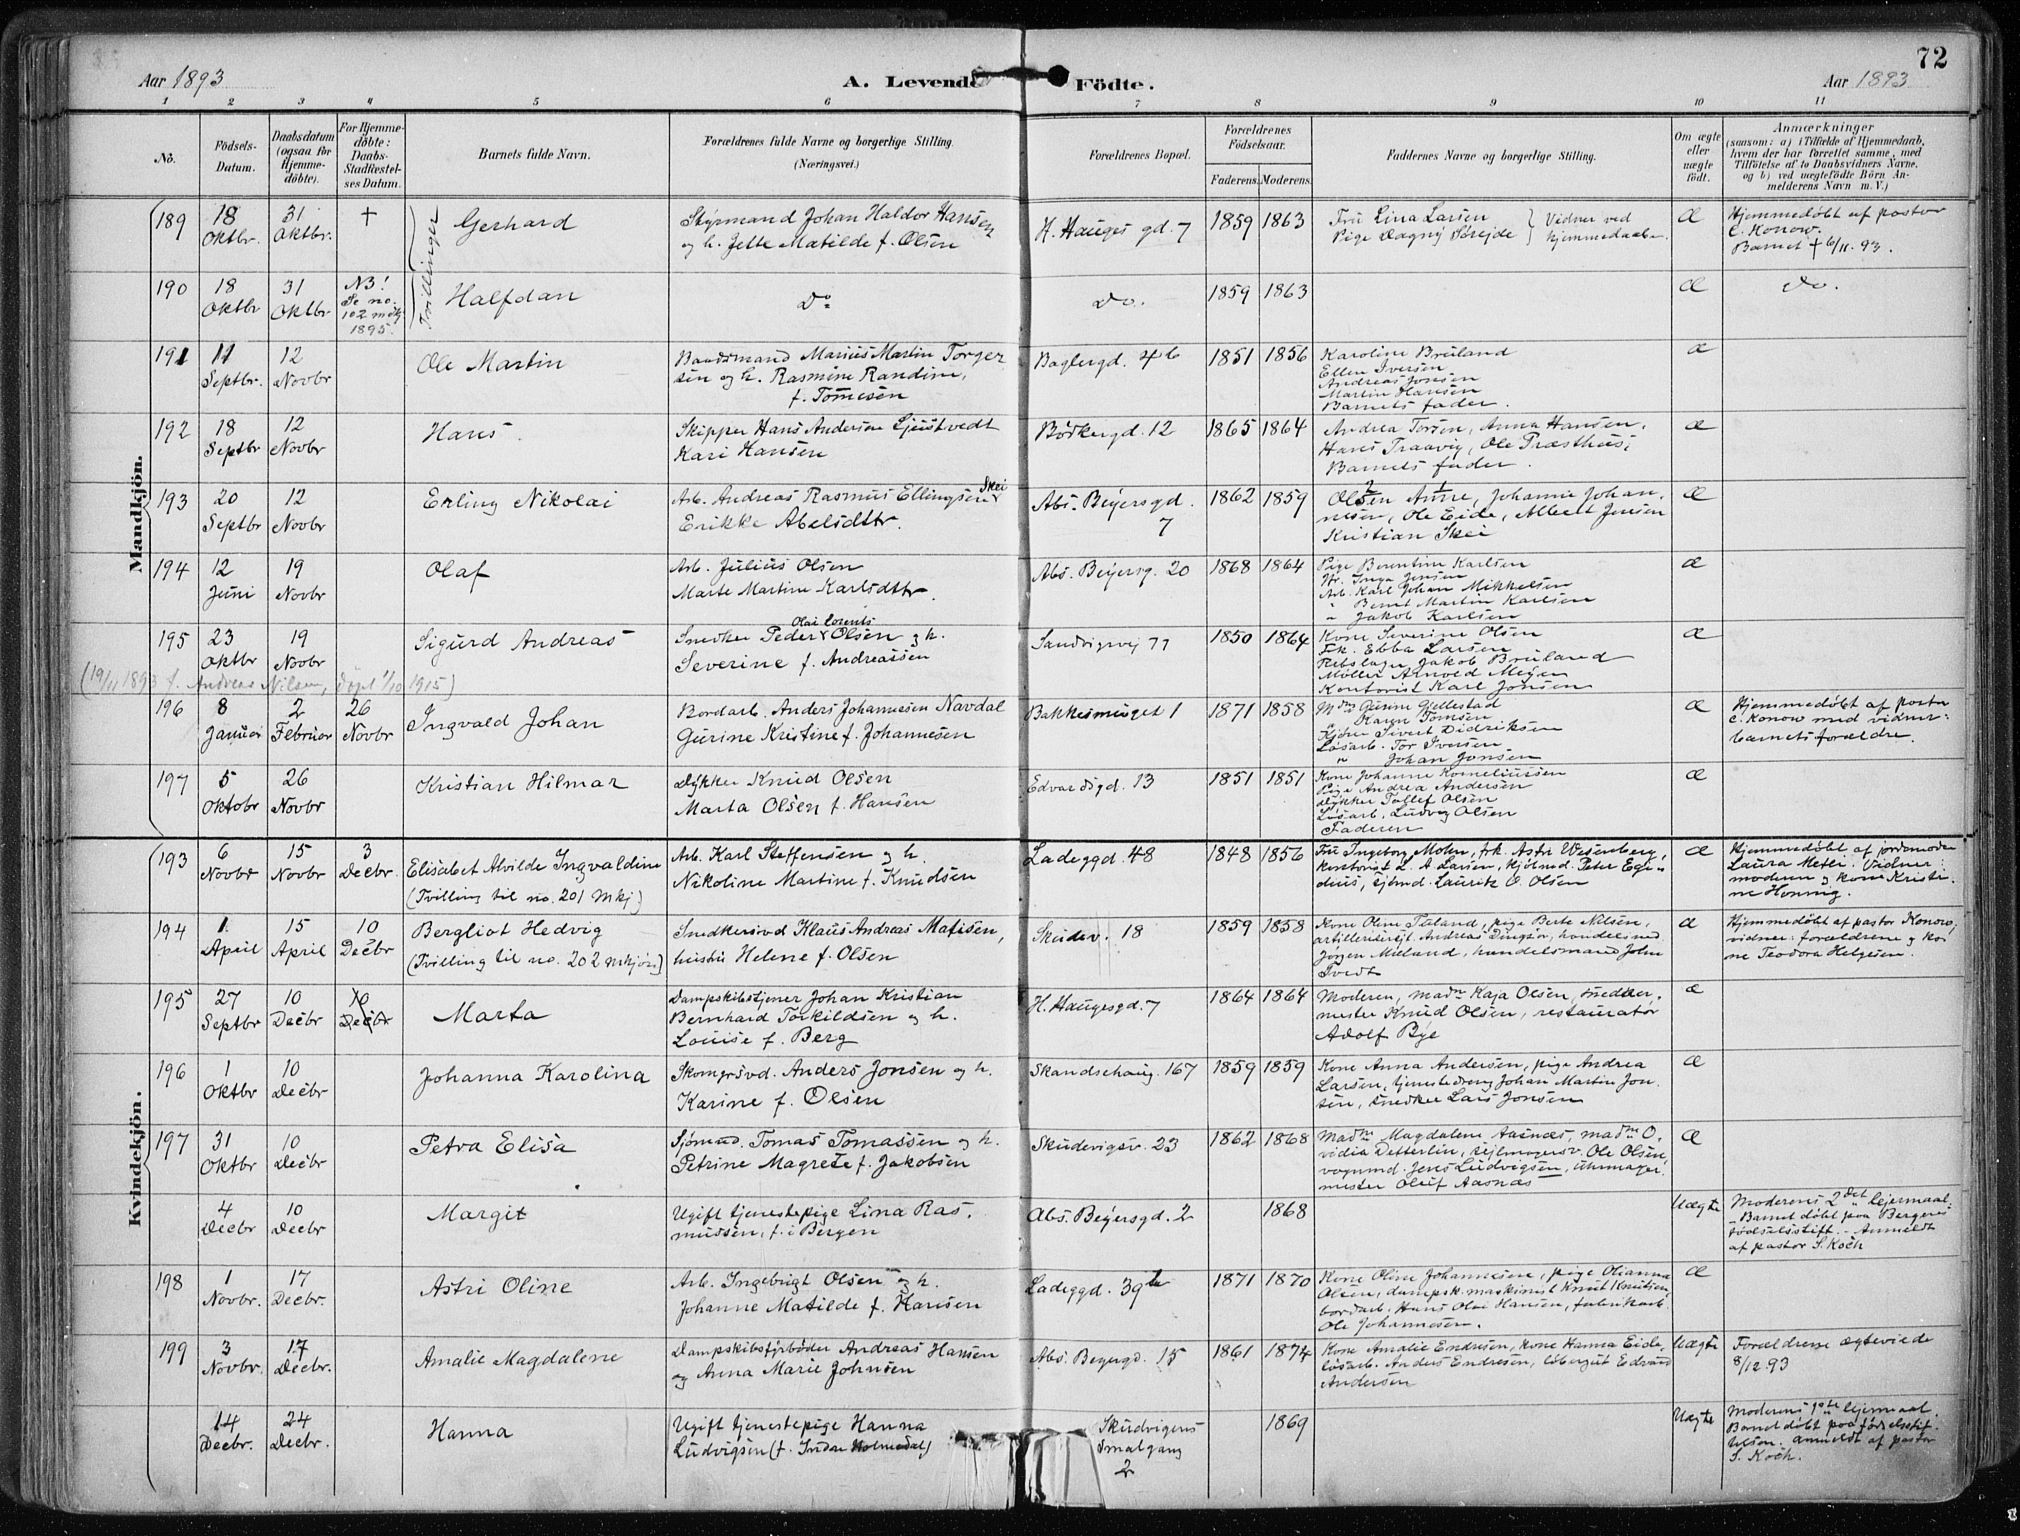 72
Aar 1893
A. Levende Födte.
Aar 1893
1 2 3 4 5 6 7 8 9 10 11
No.
Födsels-Datum.
Daabsdatum (ogsaa for Hjemme-döbte).
For Hjemme-döbte: Daabs-Stadfæstel-ses Datum.
Barnets fulde Navn.
Forældrenes fulde Navne og borgerlige Stilling.
(Næringsvei.)
Forældrenes Bopæl.
Forældrenes Födselsaar.
Faderens. Moderens.
Faddernes Navne og borgerlige Stilling.
Om ægte eller uægte födt.
Anmærkninger
(saasom: a) i Tilfælde af Hjemmedaab,
hvem der har forrettet samme, med
Tilföielse af to Daabsvidners Navne,
og b) ved uægtefödte Börn An-
melderens Navn m. V.)
Mandkjön.
Tvillinger
189 18 Oktbr. 31 Oktbr. + Gerhard
Styrmand Johan Haldor Hansen
og h. Jette Matilde f. Olsen
H. Hauges gd. 7 1859 1863
Fru Lina Larsen
Pige Dagny Sørejde
Vidner ved
hjemmedaaben
Æ
Hjemmedøbt af pastor
C. Konow.
Barnet + 6/11. 93.
190 18 Oktbr 31 Oktbr
NB!
Se no.
102 mkj
1895.
Halfdan Do Do. 1859 1863 Æ Do.
191 11 Septbr. 12 Novbr Ole Martin
Baadsmand Marius Martin Torger
sen og h. Rasmine Randine,
f. Tomesen
Baglergd. 46 1851 1856
Karoline Bruland
Ellen Iversen
Andreas Jonsen
Martin Hansen
Barnets fader.
æ
192 18 Septbr 12 Novbr Hans
Skipper Hans Andersen
Kari Hansen
Bødkergd. 12 1865 1864
Andrea Torsen, Anna Hansen,
Hans Traavig, Ole Præsthus,
Barnets fader.
æ
193 20 Septbr 12 Novbr Erling Nikolai
Arb. Andreas Rasmus Ellingsen Skei
Erikke Abelsdtr.
Abs. Beyersgd. 7 1862 1859
Olsen Anne, Johanne Johan
nesen, Ole Eide, Albert Jensen
Kristian Skei
Æ
194 12 Juni 19 Novbr Olaf
Arb. Julius Olsen
Marte Martine Karlsdtr.
Abs. Beyersg. 20 1868 1864
Pige Berentine Karlsen
Fr. Inga Jensen
Arb. Karl Johan Mikkelsen
" Bernt Martin Karlsen
" Jakob Karlsen
Æ
195 23 Oktbr 19 Novbr Sigurd Andreas
Olai Lorents
Snedker Peder Olsen og h.
Severine f. Andreassen
Sandvigsvej 77 1850 1864
Kone Severine Olsen
Frk. Ebba Larsen
Rebslager Jakob Bruland
Møller Arnold Meyer
Kontorist Karl Jonsen
Æ
(19/11 1893 f. Andreas Nilsen, døpt 1/10 1915)
196 8 Januar 2 Februar 26 Novbr Ingvald Johan
Bordarb. Anders Johannesen Navdal
Gurine Kristine f. Johannesen
Bakkesmuget 1 1871 1858
Mdm Gurine Gellestad
" Karen Tomsen
Kjører Sivert Didriksen
Løsarb. Tor Iversen
" Johan Jonsen
Æ
Hjemmedøbt af pastor
C. Konow med vidner:
barnets forældre.
197 5 Oktobr 26 Novbr Kristian Hilmar
Dykker Knud Olsen
Marta Olsen f. Hansen
Edvardsgd. 13 1851 1851
Kone Johanne Korneliussen
Pige Andrea Andersen
Dykker Tollef Olsen
Løsarb. Ludvig Olsen
Faderen
Æ
Kvindekjön.
193 6 Novbr 15 Novbr 3 Decbr. Elisabet Alvilde Ingvaldine
(Tvilling til no. 201 mkj)
Arb. Karl Steffensen og h.
Nikoline Martine f. Knudsen
Ladeggd. 48 1848 1856
Fru Ingeborg Mohn, frk. Astri Wesenberg,
kontorist L. A Larsen, kjølmd. Peter Ege-
dius, sjømd. Lauritz O. Olsen
Æ
Hjemmedøbt af jordemoder
Laura Meter. Vidner:
moderen og kone Kristi-
ne Henning.
194 1. April 15 April 10 Decbr Bergliot Hedvig
(Tvilling til no. 202 mkjøn)
Snedkersvd Klaus Andreas Matisen,
hustru Helene f. Olsen
Skudev. 18 1859 1858
Kone Oline Tuland, pige Berte Nilsen,
artillerisersjt. Andreas Dingsør, handelsmd
Jørgen Mieland, handelsmand John
Tvedt
Æ
Hjemmedøbt af pastor Konow,
vidner: forældrene og ko
ne Teodora Helgesen.
195 27 Septbr 10 Decbr 10 Decbr Marta
Dampskibstjener Johan Kristian
Bernhard Torkildsen og h.
Louise f. Berg
H. Haugesgd. 7 1864 1864
Moderen, madm Kaja Olsen, snedker-
mester Knud Olsen, restauratør
Adolf Bye
Æ
196 1 Oktbr 10 Decbr Johanna Karolina
Skomgrsvd. Anders Jonsen og h.
Karine f. Olsen
Skandsehaug. 167 1859 1859
Kone Anna Andersen, pige Andrea
Larsen, tjenestedreng Johan Martin Jon-
sen, snedker Lars Jonsen
Æ
197 31 Oktbr 10 Decbr Petra Elisa
Sjømd. Tomas Tomassen og h.
Petrine Magrete f. Jakobsen
Skudevigsv. 23 1862 1868
Madm Magdalene Aasnæs, madm O-
vidia Detterlin, sejlmagersv. Ole Olsen,
vognmd. Jens Ludvigsen, uhrmager-
mester Oluf Aasnæs
Æ
4 Decbr 10 Decbr Margit
Ugift tjenestepige Lina Ras-
mussen, f. i Bergen
Abs. Beyersgd. 2 1868 Uægte
Moderens 2det lejermaal
Barnet døbt paa Bergens
fødselsstift. - Anmeldt
af pastor S. Koch
198 1 Novbr. 17 Decbr. Astri Oline
Arb. Ingebrigt Olsen og h.
Johanne Matilde f. Hansen
Ladeggd. 39 b 1871 1870
Kone Oline Johannesen, pige Olianna
Olsen, dampsk. maskinist Knut Knutsen
bordarb. Hans Olai Hansen, fabrikarb.
Ole Johannesen.
Æ
199 3 Novbr. 17 Decbr. Amalie Magdalene
Dampskibsfyrbøder Andreas Hansen
og Anna Marie Johnsen
Abs. Beyergd. 15 1861 1874
Kone Amalie Endresen, kone Hanna Eide,
løsarb. Anders Endresen, løbergut Edvard
Andersen
Uægte
Forældrene ægteviede
8/12 93
14 Decbr. 24 Decbr. Hanna
Ugift tjenestepige Hanna
Ludvigsen (f. Indre Holmedal)
Skudvigens
Smalgang
2
1869 Uægte
Moderens 1ste lejermaal.
Barnet døbt paa fødselsstif-
telsen. anmeldt af pastor
S. Koch.